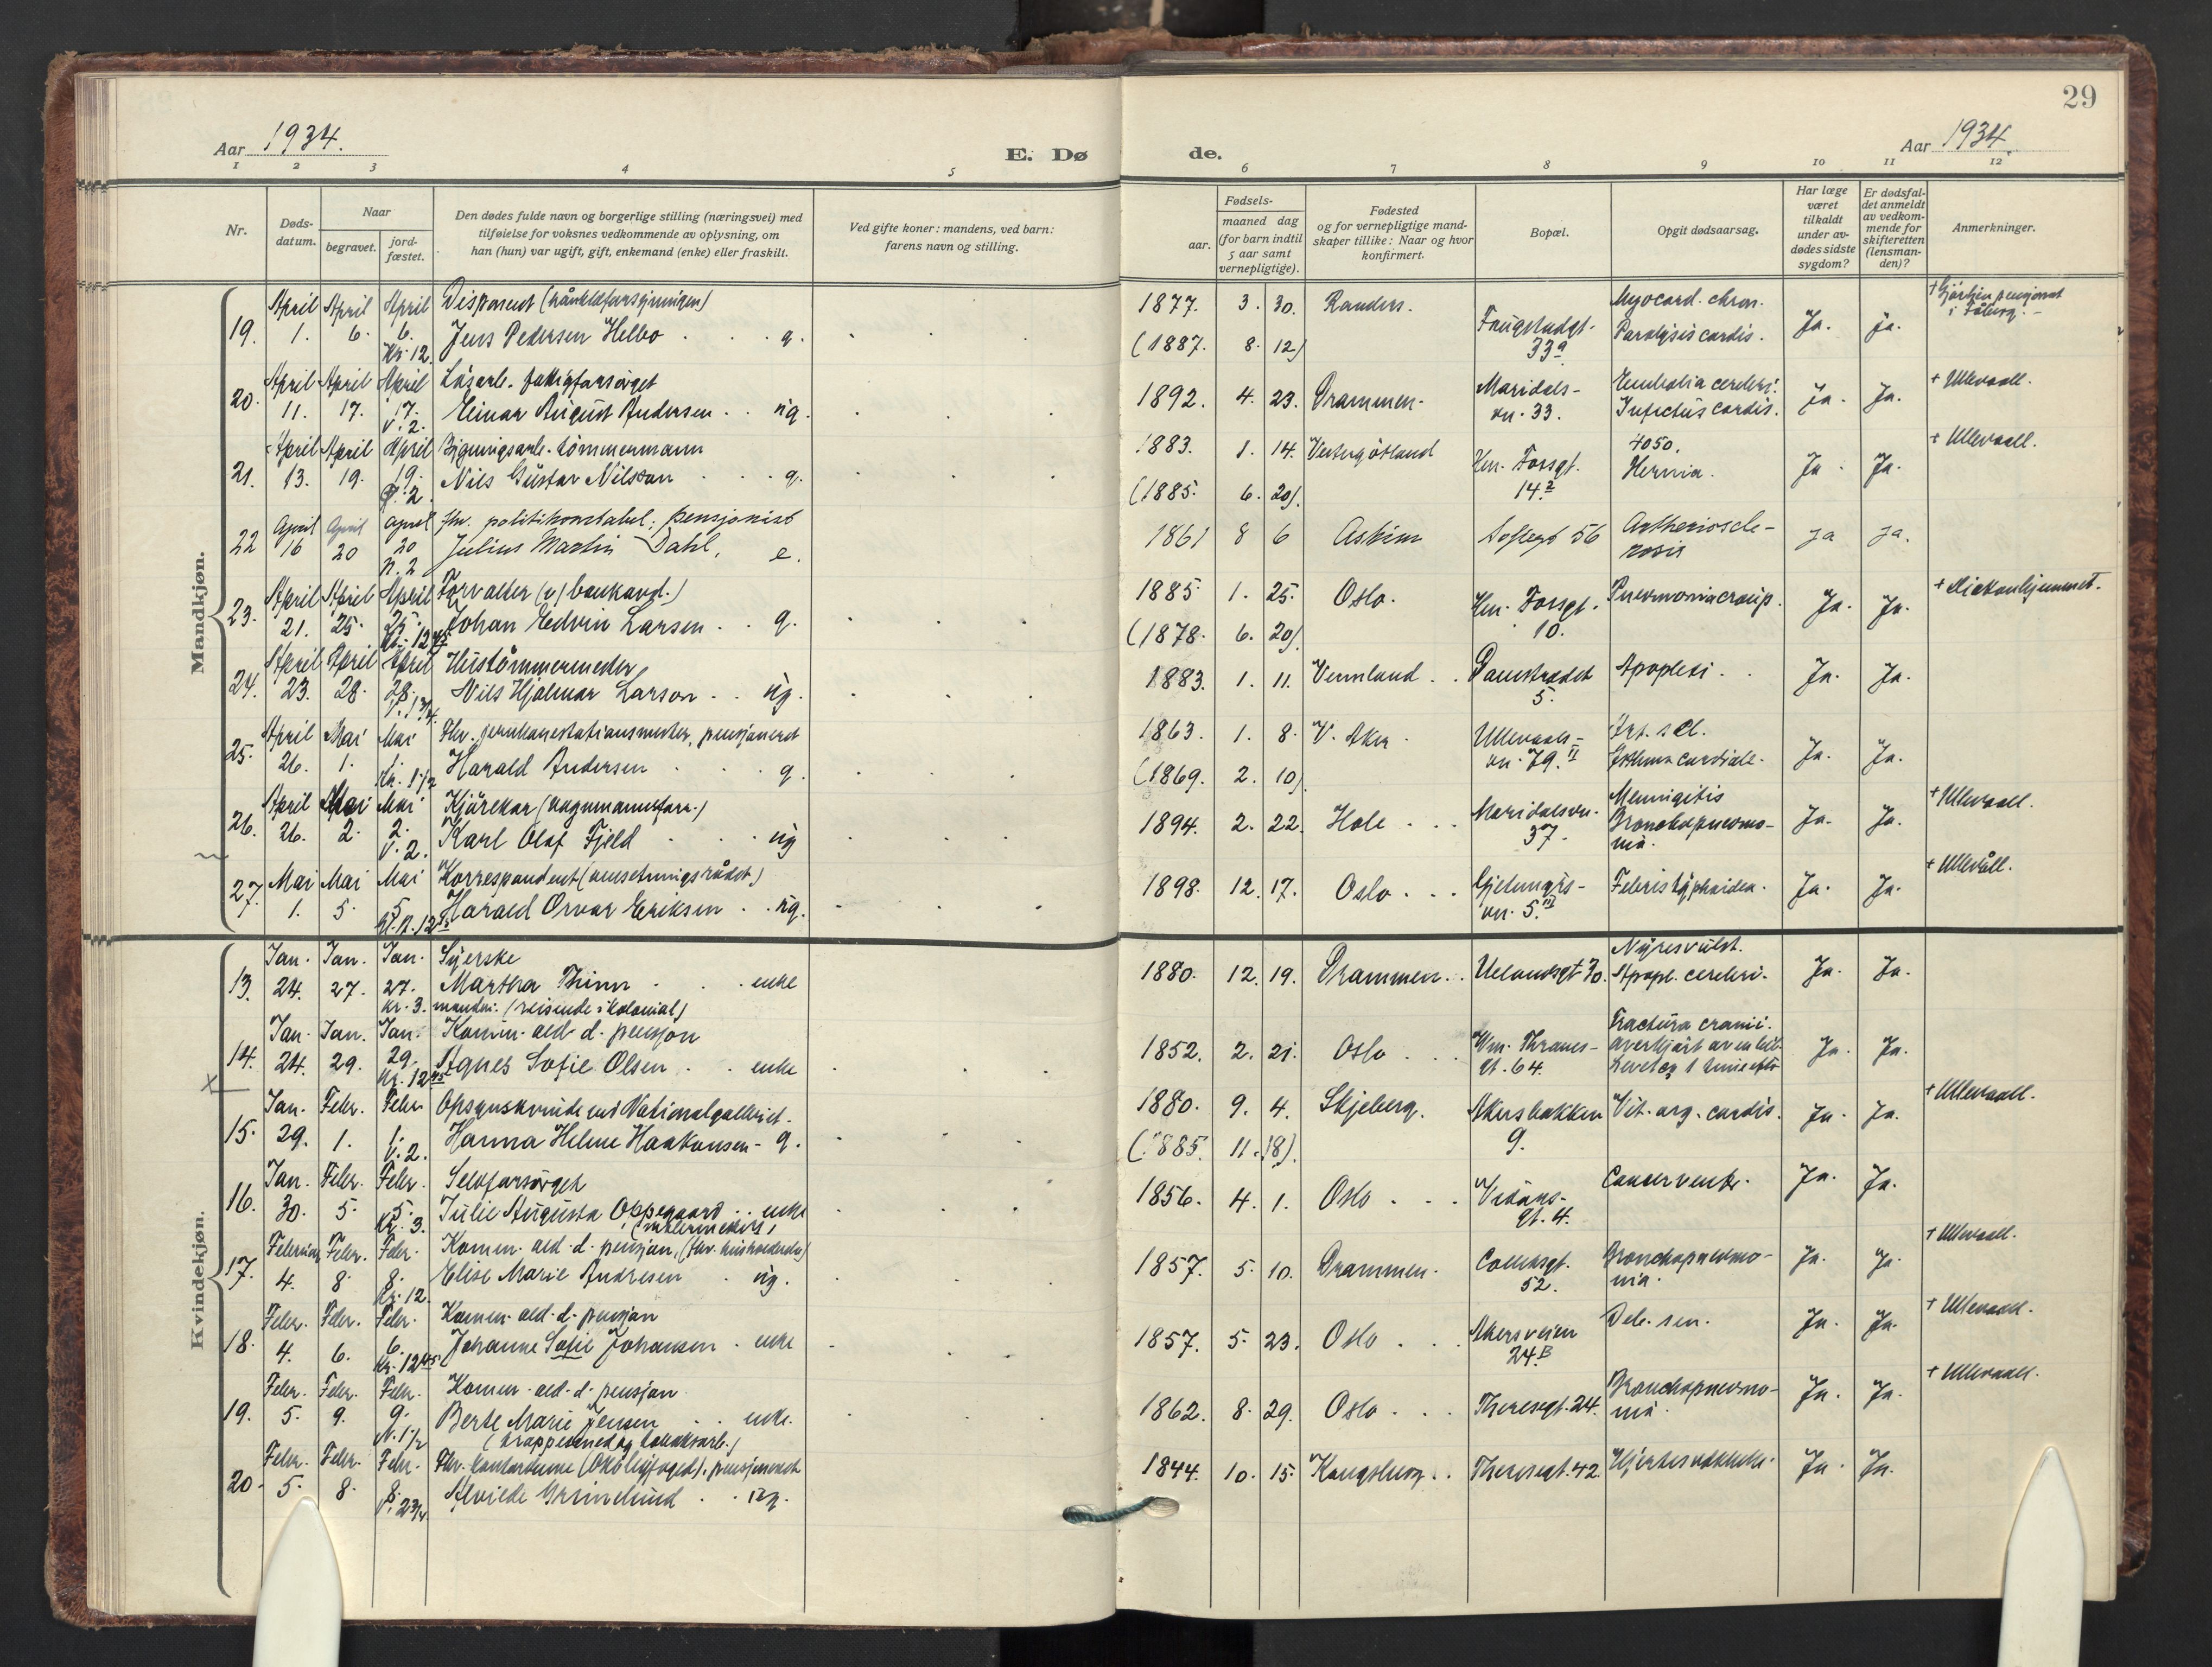 29
Aar 1934.
E. Dø
de.
Aar 1934.
1 2 3 4 5 6 7 8 9 10 11 12
Nr.
Døds-
datum.
Naar
begravet.
jord-
fæstet.
Den dødes fulde navn og borgerlige stilling (næringsvei) med
tilføielse for voksnes vedkommende av oplysning, om
han (hun) var ugift, gift, enkemand (enke) eller fraskilt.
Ved gifte koner: mandens, ved barn:
farens navn og stilling.
Fødsels-
aar. maaned dag
(for barn indtil
5 aar samt
vernepligtige).
Fødested
og for vernepligtige mand-
skaper tillike: Naar og hvor
konfirmert.
Bopæl.
Opgit dødsaarsag.
Har læge
været
tilkaldt
under av-
dødes sidste
sygdom?
Er dødsfal-
det anmeldt
av vedkom-
mende for
skifteretten
(lensman-
den)?
Anmerkninger.
Mandkjøn.
April April April Disponent
19. 1. 6. 6. Jens Pedersen Helbo g.
Kr. 12.
1877. 3. 30. Randers. Myocard. chron.
(1887. 8. 12) 33a Paralysis cordis. Ja. ja.
April April April Løsarb.
20. 11. 17. 17. Einar August Andersen ug.
V. 2.
1892. 4. 23. Drammen. Maridals- Embolia cerebri.
vn. 33. Infictus cordis. Ja. Ja. + Ullevaall.
April April April Bygningsarb. tömmermann
21. 13. 19. 19. Nils Gustav Nilsson g.
1883. 1. 14. Vestergötland Hm. Fossgt. 4050. Hernia. Ja. Ja. + Ullevaall.
(1885. 6. 20) 14.2
April April April fhv. politikonstabel, pensjonist
22 16 20 20 Julius Martin Dahl, e.
n. 2
1861 8 6 Askim Sofiegt 56 Artherioscle-
rosis ja ja.
April April April Forvalter
23. 21. 25. 25. Johan Edvin Larsen g.
1885 1. 25. Oslo. Hm. Fossgt. Pneumonia croup. Ja. Ja. + Diakonhjemmet.
(1878. 6. 20) 10.
April April April Hustömmermester
24. 23. 28. 28. Nils Hjalmar Larson ug.
1883. 1. 11. Vermland 5. Apoplexi Ja. Ja.
April Mai Mai Fhv. jernbanestationsmester, pensjonert
25. 26. 1. 1. Harald Andersen g.
Kr. 1 1/2
1863. 1. 8. V. Aker. Ullevaals- Art. scl.
(1869. 2. 10) vn. 79. II Asthma cardiale. Ja. Ja.
April Mai Mai Kjørekar
26. 26. 2. 2. Karl Olaf Fjeld ug
V. 2.
1894. 2. 22. Hole Maridalsvn. Meningitis
37. Bronchopneumo-
nia. Ja. Ja. + Ullevaall.
Mai Mai Mai Korrespondent
27. 1. 5. 5. Harald Orvar Eriksen ug.
1898. 12. 17. Oslo Febris typhoidea. Ja. Ja. + Ullevåll.
vn. 5. III
Kvindekjøn.
Jan. Jan. Jan. Syerske
13. 24. 27. 27. Martha Thinn enke
Kr. 3. manden: (reisende i kolonial)
1880. 12. 19. Drammen Uelandsgt 70. Apopl. cerebri. Ja. Ja.
Jan. Jan. Jan. Komm. ald. d. pensjon
14. 24. 29. 29. Agnes Sofie Olsen enke
1852. 2. 21. Oslo Wm. Thranes- Fractura cranii.
gt. 64. Ja. Ja.
Jan. Febr. Febr. Opsynskvinde ved Nationalgalleriet.
15. 29. 1. 1. Hanna Helene Haakonsen g.
V. 2.
1880. 9. 4. Skjeberg. Akersbakken Vit. org. cordis. Ja. Ja. + Ullevaall.
(1885. 11. 18). 9.
Jan. Febr. Febr. Selvforsørget
16. 30. 5. 5. Julie Augusta Oppegaard enke
Kr. 3. (malermester)
1856. 4. 1. Oslo Cancer ventr. Ja. Ja.
gt. 4.
Februar Febr. Febr. Komm. ald. d. pensjon,
17. 4. 8. 8. Elise Marie Andresen ug.
Kr. 12.
1857. 5. 10. Drammen. Colletsgt. Bronchopneumo-
52. nia. Ja. Ja. + Ullevaall.
Febr. Febr. Febr. Komm. ald. d. pensjon
18. 4. 6. 6. Johanne Sofie Johansen enke
Kr. 12 45
1857. 5. 23. Oslo Akersveien Deb. sen. Ja. Ja. + Ullevaall.
24.B
Febr. Febr. Febr. Komm. ald. d. pensjon
19. 5. 9. 9. Berte Marie Jensen enke.
N. 1 1/2
1862. 8. 29. Oslo Theresegt. 24. Bronchopneumo-
nia. Ja. Ja. + Ullevaall.
Febr. Febr. Febr. Fhv. kontordame pensjonert
20. 5. 8. 8. Alvilde Grimelund ug.
V. 2 3/4
1844. 10. 15. Kongsberg Theresegt. 42. Ja. Ja.